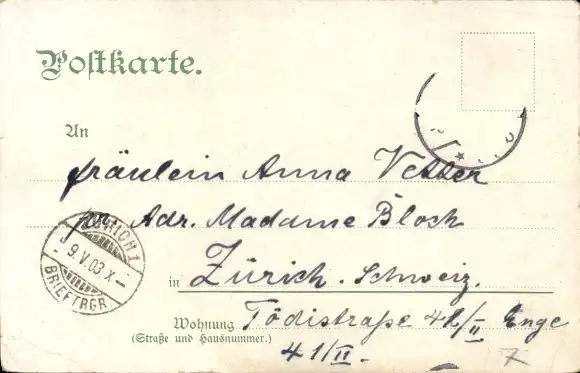 Postkarte.
An
Fräulein Anna Vetter
Adr. Madame Bloch
in Zürich. Schweiz.
Wohnung Tödistraße 41/II Enge
(Straße und Hausnummer.)
41/II.-
ZÜRICH 1
9.V.03.X-
BRIEFTRGR.